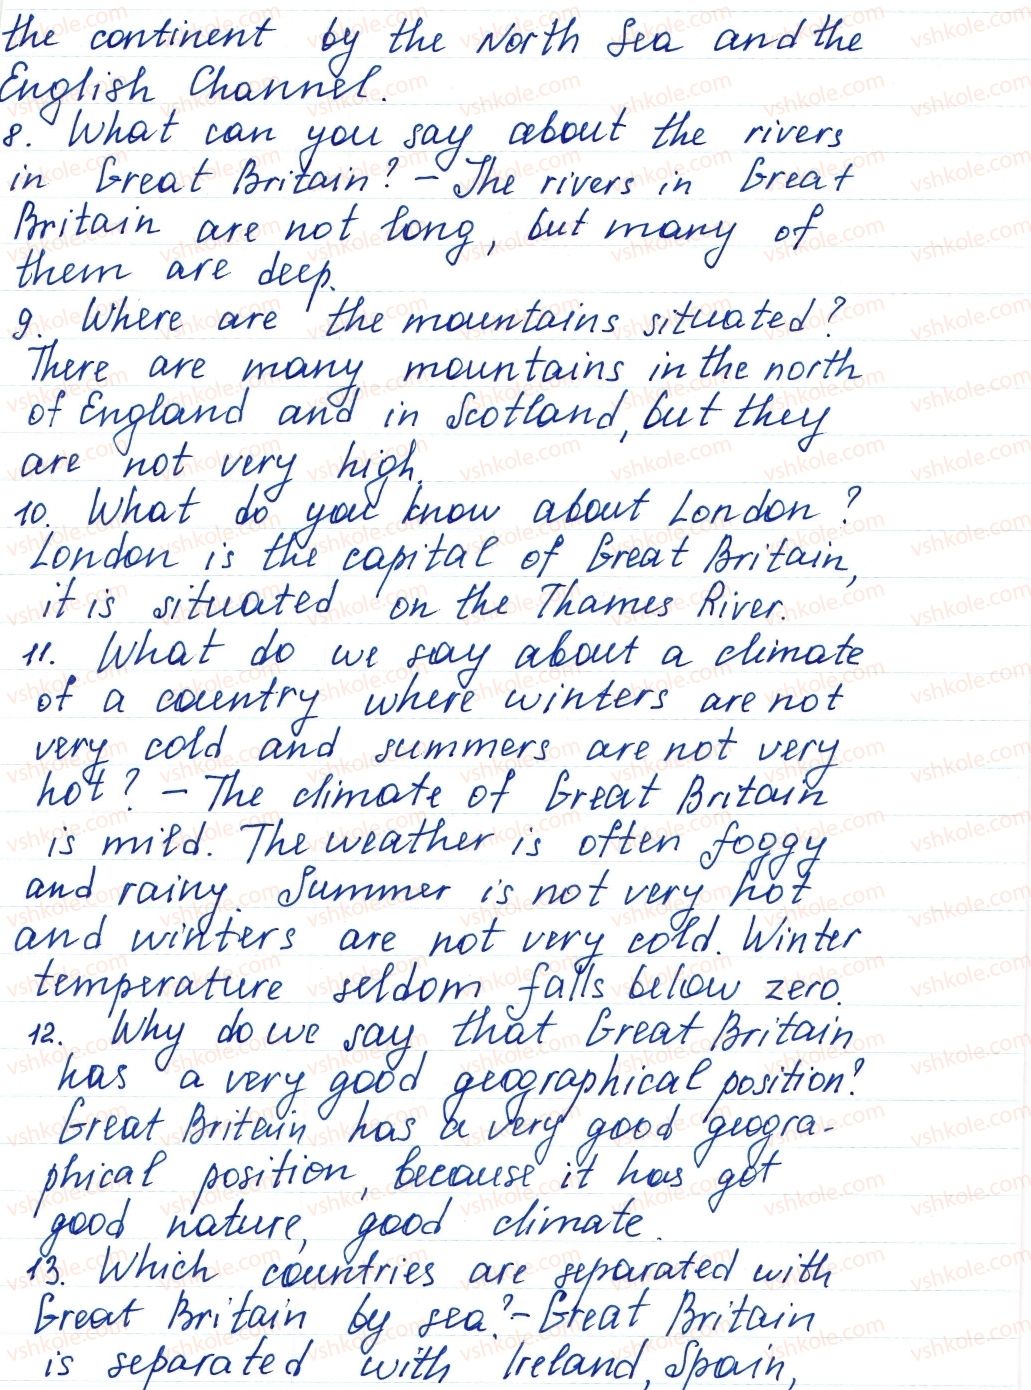 the continent by the North Sea and the
English Channel.
8. What can you say about the rivers
in Great Britain? – The rivers in Great
Britain are not long, but many of
them are deep.
9. Where are the mountains situated?
There are many mountains in the north
of England and in Scotland, but they
are not very high.
10. What do you know about London?
London is the capital of Great Britain,
it is situated on the Thames River.
11. What do we say about a climate
of a country where winters are not
very cold and summers are not very
hot? – The climate of Great Britain
is mild. The weather is often foggy
and rainy. Summer is not very hot
and winters are not very cold. Winter
temperature seldom falls below zero.
12. Why do we say that Great Britain
has a very good geographical position?
Great Britain has a very good geogra-
phical position, because it has got
good nature, good climate.
13. Which countries are separated with
Great Britain by sea? – Great Britain
is separated with Ireland, Spain,
vshkole.com